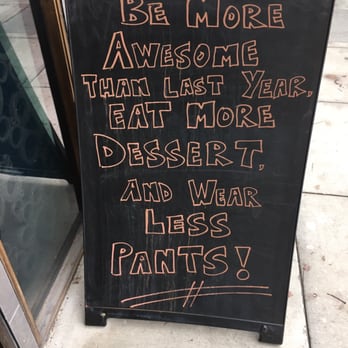 BE MORE
AWESOME
THAN LAST YEAR,
EAT MORE
DESSERT,
AND WEAR
LESS
PANTS!